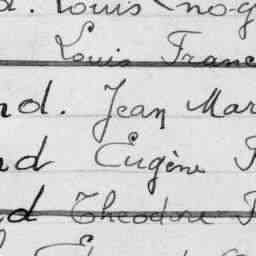 d. Louis
Louis Franc
nd. Jean Mar
nd Eugène
nd Theodore